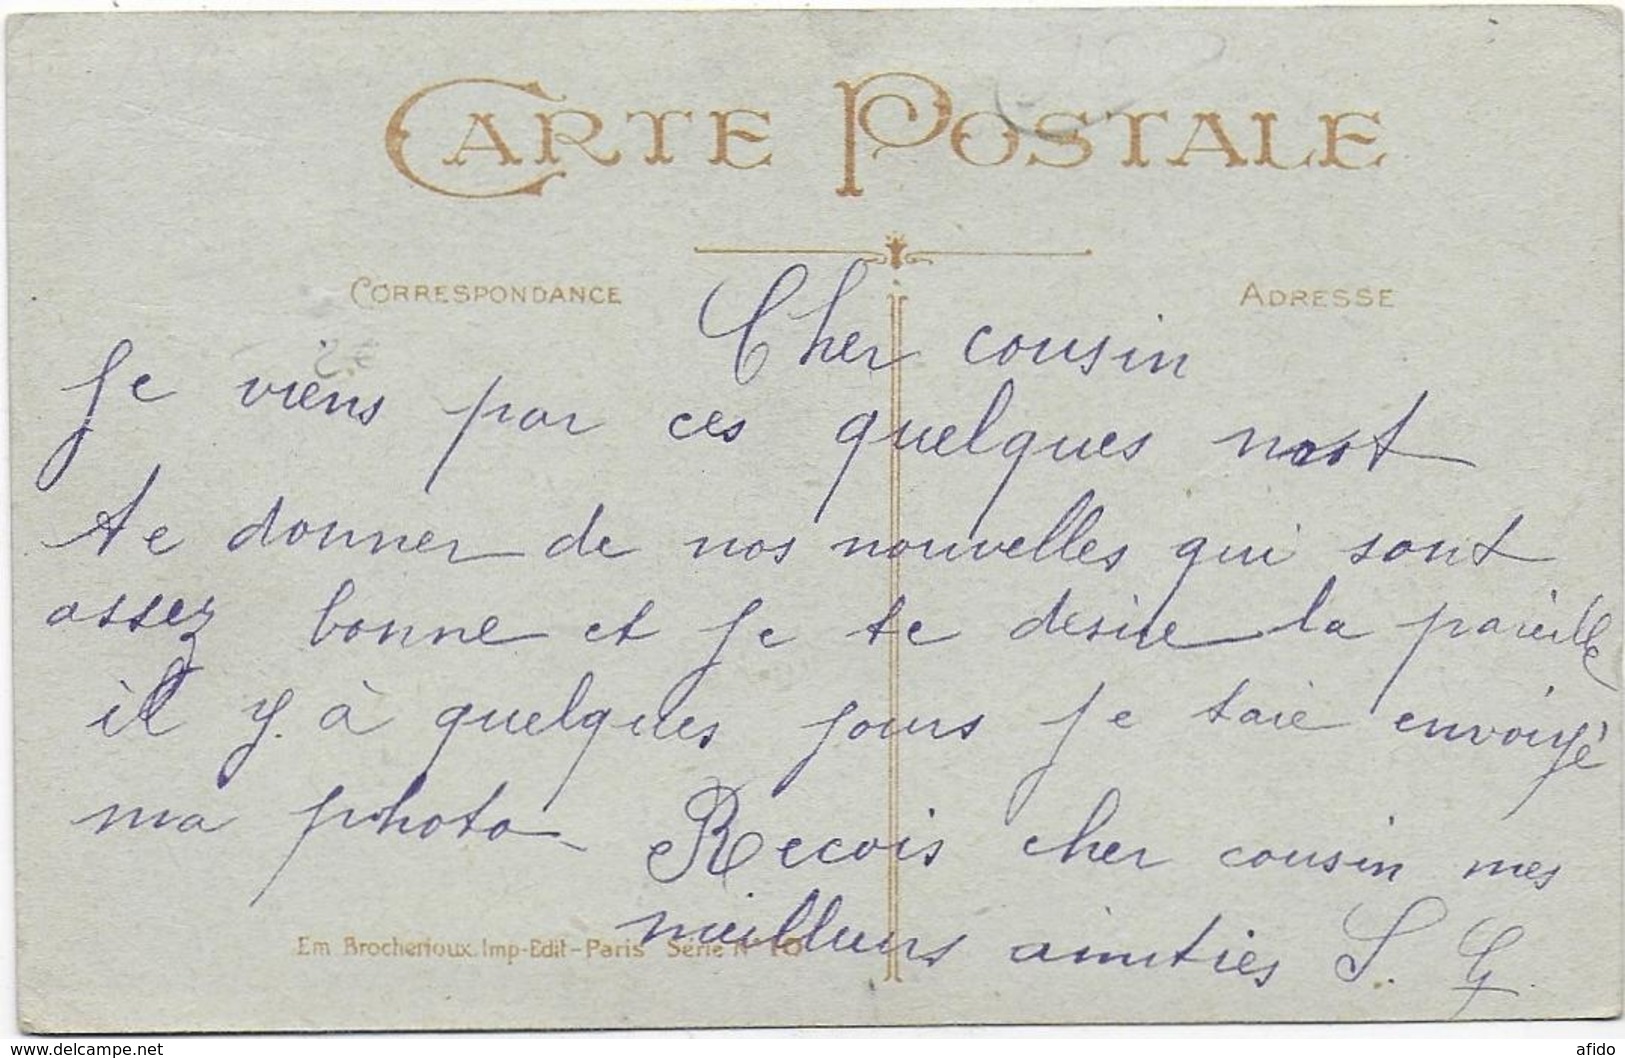 CARTE POSTALE
CORRESPONDANCE
ADRESSE
Cher cousin
Je viens par ces quelques most
te donner de nos nouvelles qui sont
assez bonne et je te desire la pareille
il y. à quelques jours je taie envoyé
ma photo Recois cher cousin mes
meilleurs amities S. G.
Em Brocherioux. Imp-Edit-Paris Série N° 10
www.delcampe.net
afido